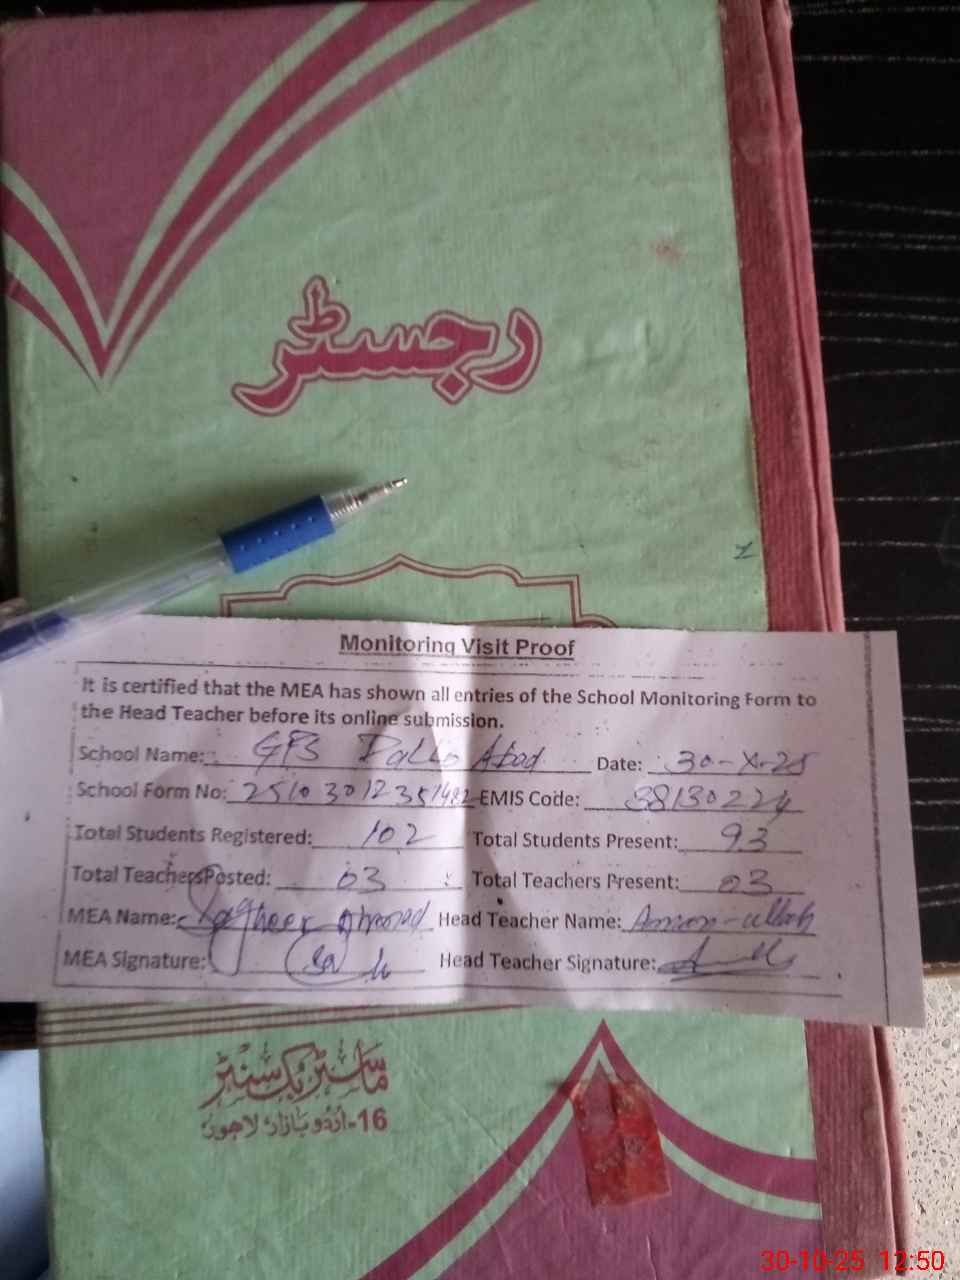 رجسٹر
Monitoring Visit Proof
It is certified that the MEA has shown all entries of the School Monitoring Form to
the Head Teacher before its online submission.
School Name: GPS Dallo Abad Date: 30-X-25
School Form No: EMIS Code: 38130224
Total Students Registered: 102 Total Students Present: 93
Total Teachers Posted: 03 Total Teachers Present: 03
MEA Name: Sagheer Ahmad Head Teacher Name: Aman-ullah
MEA Signature: Head Teacher Signature:
ماسٹر بک سنٹر
16-اُردو بازار لاہور
30-10-25 12:50